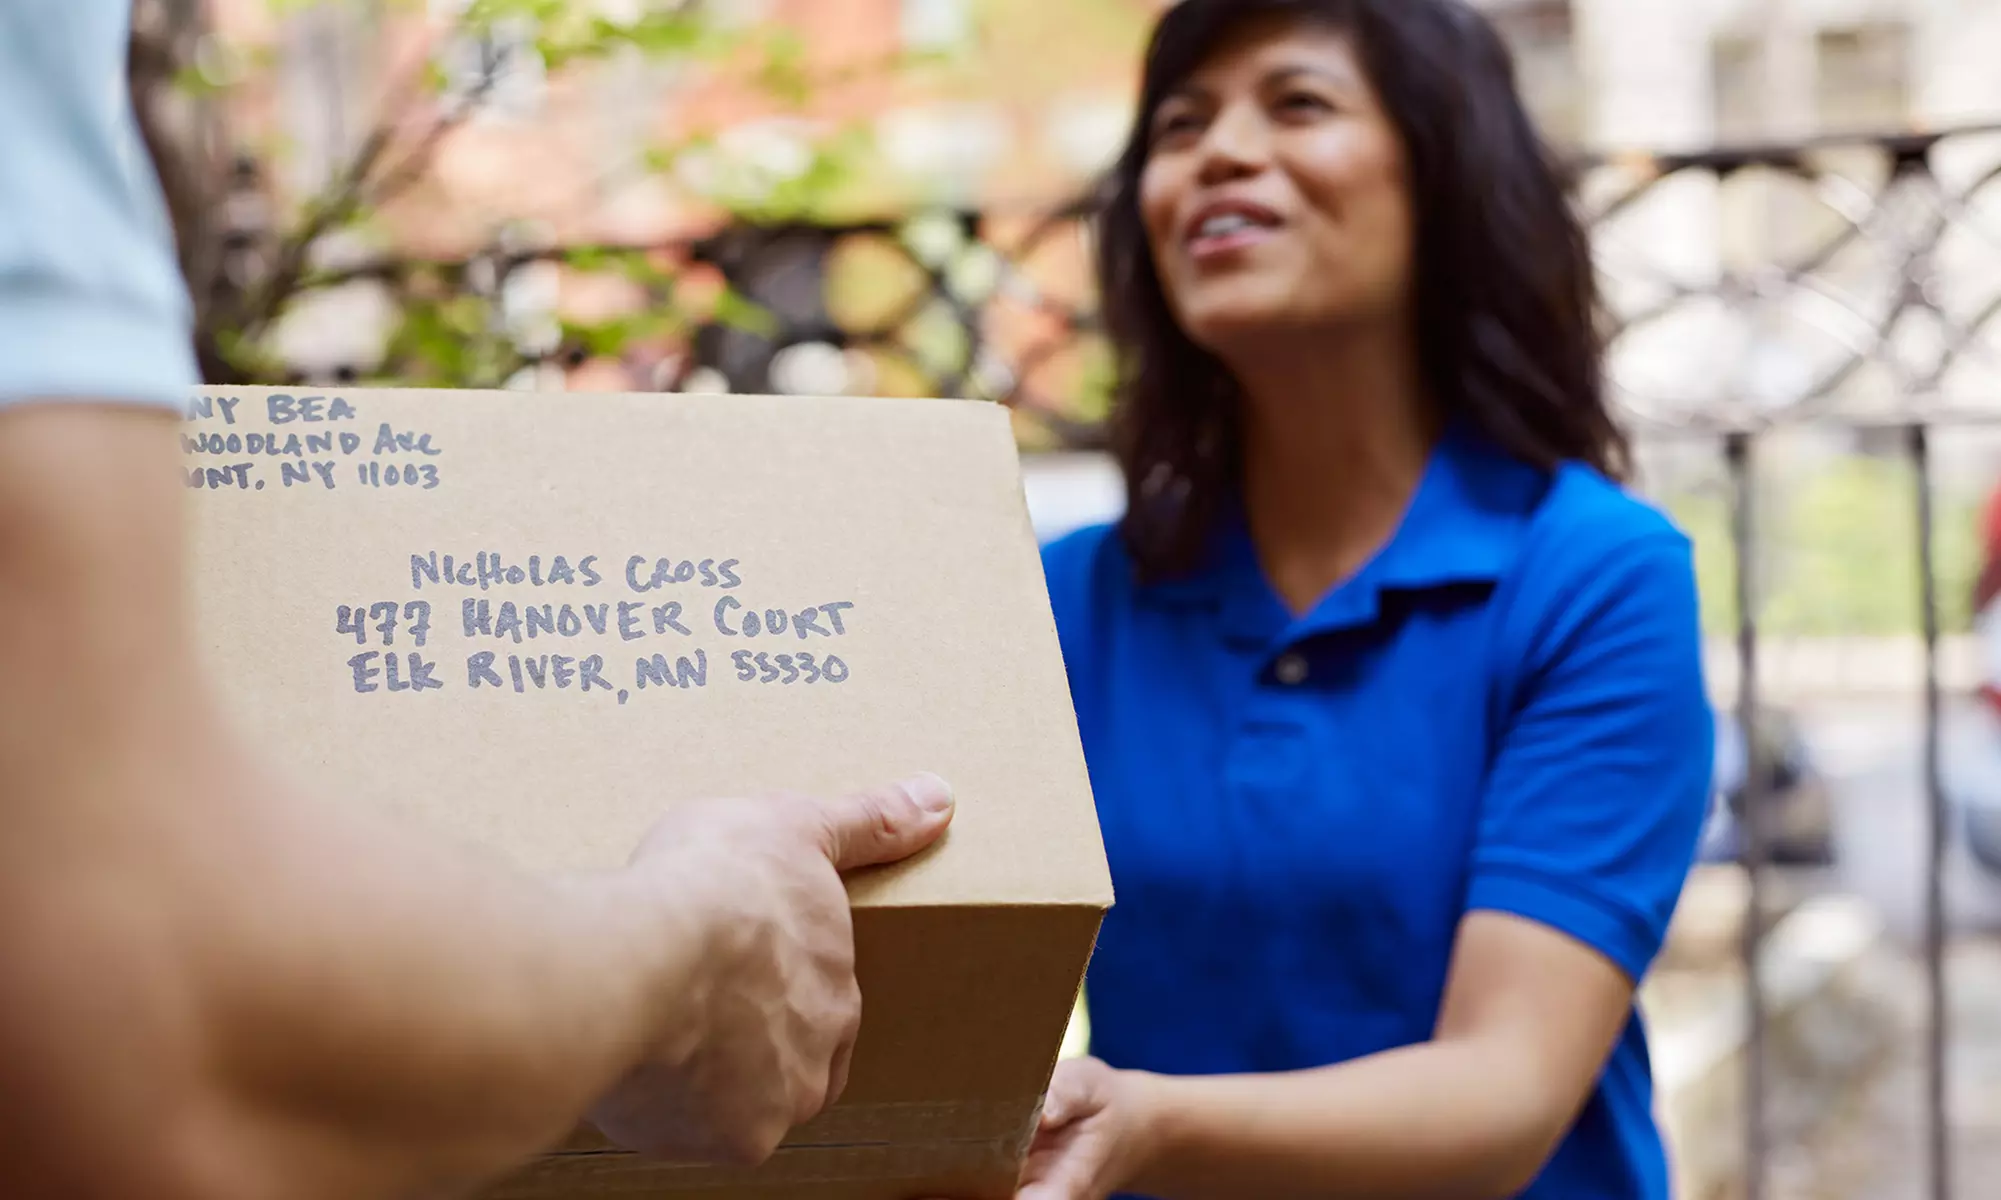 NY BEA
WOODLAND AVE
ONT, NY 11003
NICHOLAS CROSS
477 HANOVER COURT
ELK RIVER, MN 55330